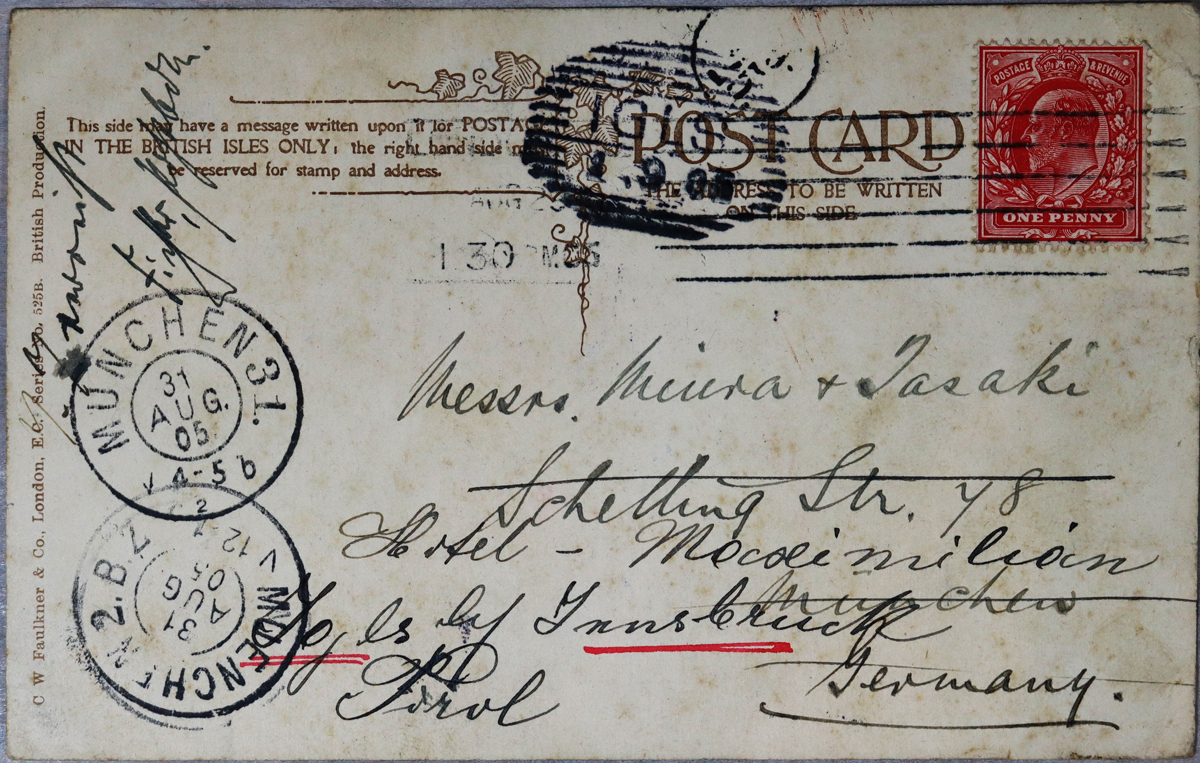 This side may have a message written upon it for POSTAGE
IN THE BRITISH ISLES ONLY: the right hand side
be reserved for stamp and address.
POST CARD
THE ADDRESS TO BE WRITTEN
ON THIS SIDE
POSTAGE & REVENUE
ONE PENNY
1 30 PM 05
Messrs. Miura + Tasaki
Schelling Str. 48
Hotel - Maximilian
München
Igls by Innsbruck
Germany.
Tirol
MÜNCHEN 31.
31
AUG.
05
V 4-5 b
MUENCHEN 2.B.Z
31
AUG
05
V 12
C W Faulkner & Co., London, E.C. Series No. 525B. British Production.